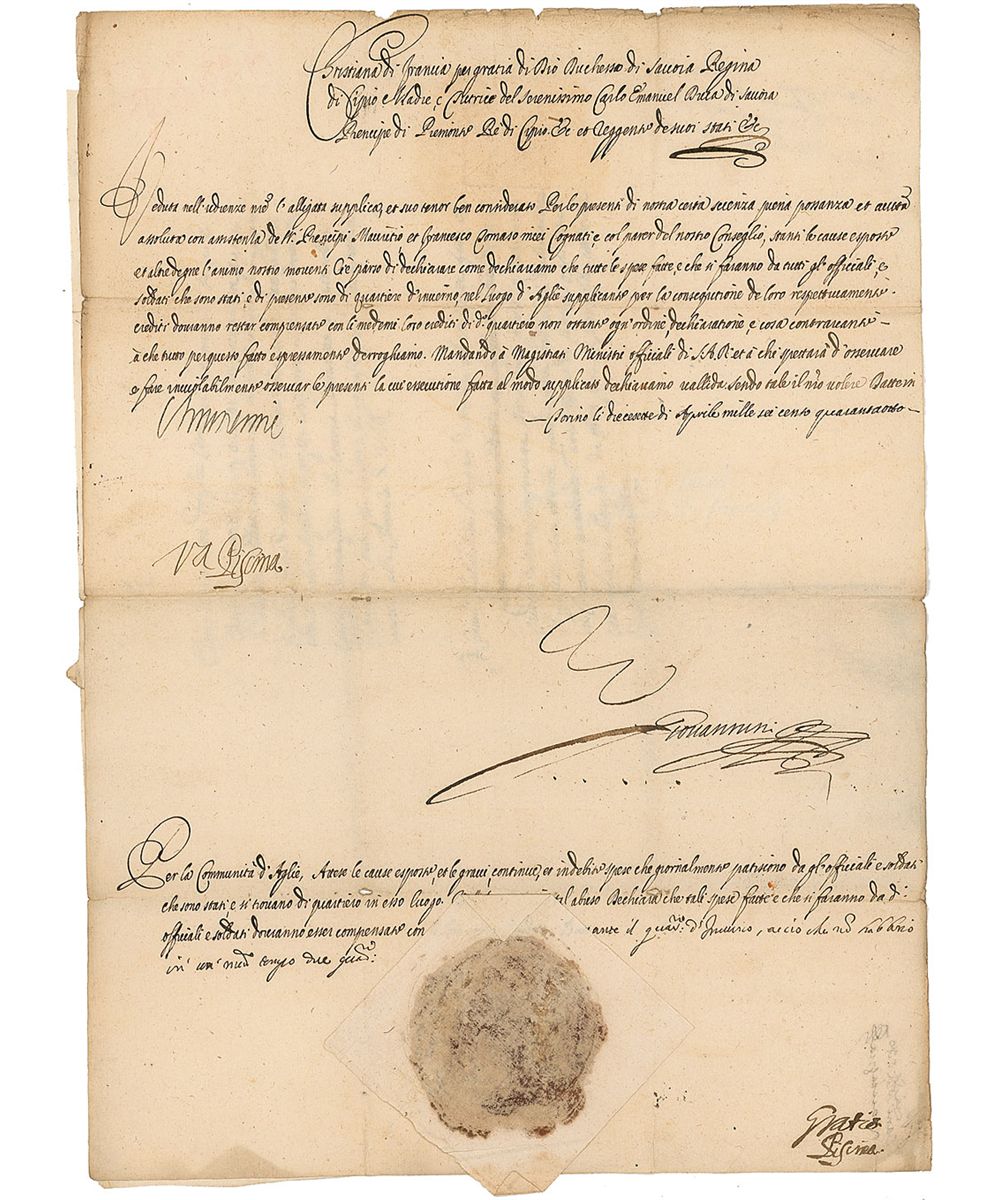 Christiana di Francia per gratia di Dio Duchessa di Savoia Regina
di Cipro e Madre, e Tutrice del Serenissimo Carlo Emanuel Duca di Savoia
Prencipe di Piemonte Rè di Cipro &c et Reggente de suoi stati &c
Veduta nell'udienze nre l'alligata supplica, et suo tenor ben considerato Per le presenti di nostra certa scienza piena possanza et autta
assoluta con assistenza de SSri Prencipi Mauritio et Francesco Tomaso miei Cognati e col parer del nostro Conseglio, stanti le cause esposte
et altre degne l'animo nostro moventi Ci è parso di dechiarare come dechiaramo che tutte le spese fatte, e che si faranno da tutti gl'officiali, e
soldati che sono stati, e di presente sono di quartiere d'inverno, nel Luogo d'Agliè supplicante per la consequtione de loro respettivamente
crediti dovranno restar compensate con li medemi loro crediti di do quartiero non ostante ogn'ordine dechiaratione, e cosa contrariante
à che tutto per questo fatto espressamente derroghiamo. Mandando à Magistrati Ministri officiali di S.A.R. et à chi spettarà d'osservare
e fare inviolabilmente osservar le presenti la cui essecutione fatta al modo supplicato dechiaramo vallida. sendo tale il nro volere Datte in
Torino li diecesette di Aprile mille sei cento quarantaotto
Chrestienne
Va Piscina
Giovannini
Per la Communità d'Agliè, Attese le cause esposte, et le gravi, continue, et indebite spese che giornalmente patisiono da gl'officiali e soldati
che sono stati, e si trovano di quartiero in esso luogo. abuso Dechiara che tali spese fatte e che si faranno da di
officiali e soldati dovranno esser compensate con il quarro d'Inverno, accio che no habbino
in un' medo tempo due quarri
Gratis
Piscina